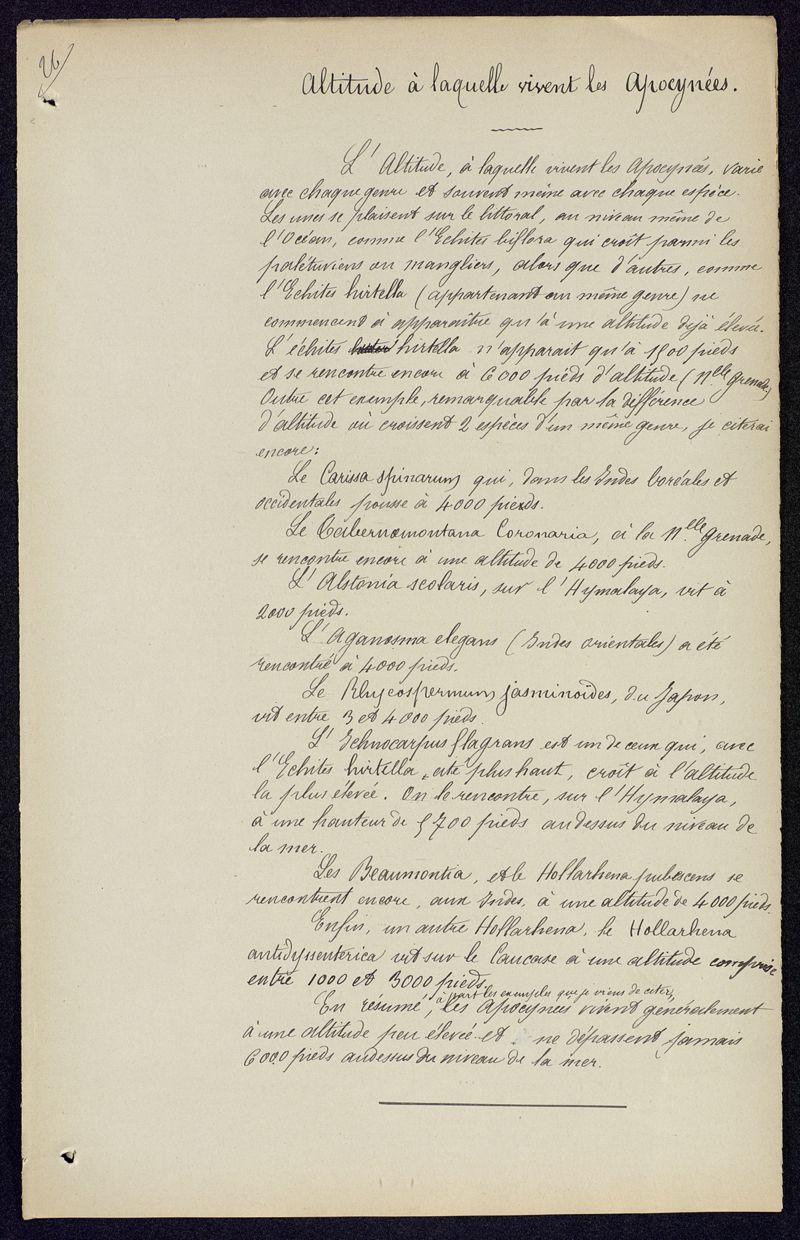 26
Altitude à laquelle vivent les Apocynées.
L'Altitude, à laquelle vivent les Apocynées, varie
avec chaque genre et souvent même avec chaque espèce.
Les unes se plaisent sur le littoral, au niveau même de
l'Océan, comme l'Echites biflora qui croît parmi les
palétuviers ou mangliers, alors que d'autres, comme
l'Echites hirtella (appartenant au même genre) ne
commencent à apparaître qu'à une altitude déjà élevée.
L'échites hirtella n'apparait qu'à 1500 pieds
et se rencontre encore à 6000 pieds d'altitude (Nelle Grenade)
Outre cet exemple, remarquable par la différence
d'altitude où croissent 2 espèces d'un même genre, je citerai
encore:
Le Carissa spinarum qui, dans les Indes boréales et
occidentales pousse à 4000 pieds.
Le Tabernœmontana Coronaria, à la Nelle Grenade,
se rencontre encore à une altitude de 4000 pieds.
L'Alstonia scolaris, sur l'Hymalaya, vit à
2000 pieds.
L'Aganosma elegans (Indes orientales) a été
rencontré à 4000 pieds.
Le Rhyeospermum jasminoïdes, du Japon,
vit entre 3 et 4000 pieds.
L'Ichnocarpus flagrans est un de ceux qui, avec
l'Echites hirtella, cité plus haut, croît à l'altitude
la plus élevée. On le rencontre, sur l'Hymalaya,
à une hauteur de 5700 pieds audessus du niveau de
la mer.
Les Beaumontia, et le Hollarhena pubescens se
rencontrent encore, aux Indes, à une altitude de 4000 pieds.
Enfin, un autre Hollarhena, le Hollarhena
antidyssenterica vit sur le Caucase à une altitude comprise
entre 1000 et 3000 pieds.
En résumé, à part les exemples que je viens de citer, les Apocynées vivent généralement
à une altitude peu élevée et ne dépassent jamais
6000 pieds audessus du niveau de la mer.